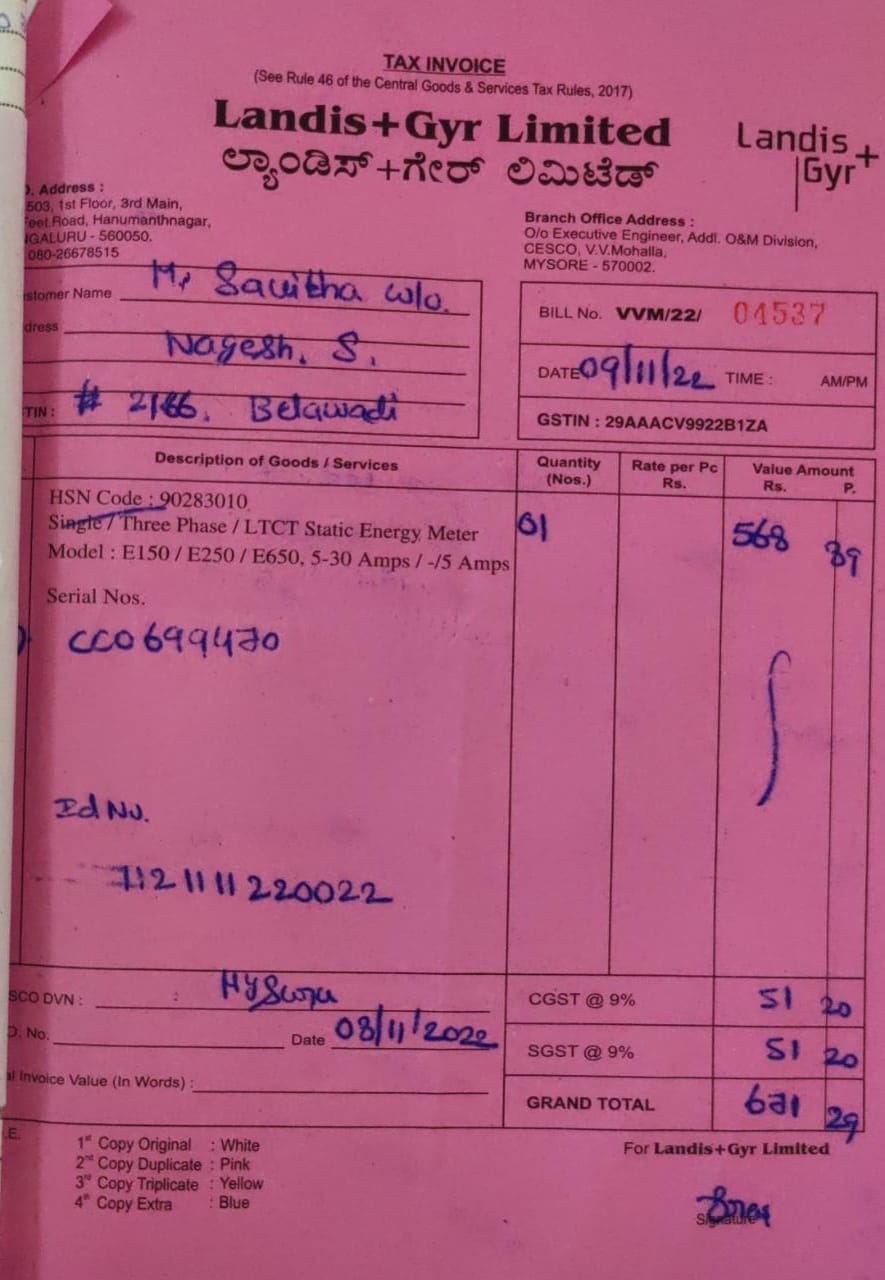 TAX INVOICE
(See Rule 46 of the Central Goods & Services Tax Rules, 2017)
Landis+Gyr Limited
ಲ್ಯಾಂಡಿಸ್+ಗೇರ್ ಲಿಮಿಟೆಡ್
Landis+
Gyr+
. Address :
503, 1st Floor, 3rd Main,
Road, Hanumanthnagar,
GALURU - 560050.
080-26678515
Branch Office Address :
O/o Executive Engineer, Addl. O&M Division,
CESCO, V.V.Mohalla,
MYSORE - 570002.
stomer Name Savitha w/o.
dress Nagesh. S.
TIN : # Belawadi
BILL No. VVM/22/ 04537
DATE 09/11/22 TIME : AM/PM
GSTIN : 29AAACV9922B1ZA
Description of Goods / Services Quantity (Nos.) Rate per Pc Rs. Value Amount Rs. P.
HSN Code : 90283010
Single / Three Phase / LTCT Static Energy Meter 01 568 89
Model : E150 / E250 / E650, 5-30 Amps / -/5 Amps
Serial Nos.
CC0699470
Id No.
7121111220022
SCO DVN : :
. No. Date 08/11/2022
al Invoice Value (In Words) :
CGST @ 9% 51 20
SGST @ 9% 51 20
GRAND TOTAL 671 29
.E.
1st Copy Original : White
2nd Copy Duplicate : Pink
3rd Copy Triplicate : Yellow
4th Copy Extra : Blue
For Landis+Gyr Limited
Signature